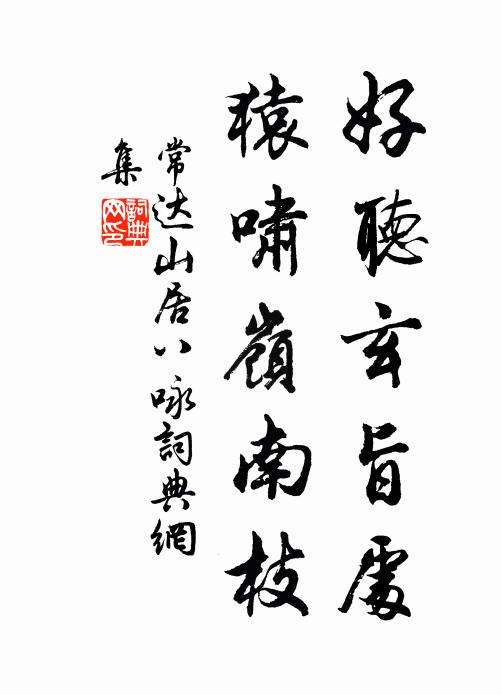 好聽玄旨處
猿嘯嶺南枝
常达山居八咏詞典網
集
詞典网印